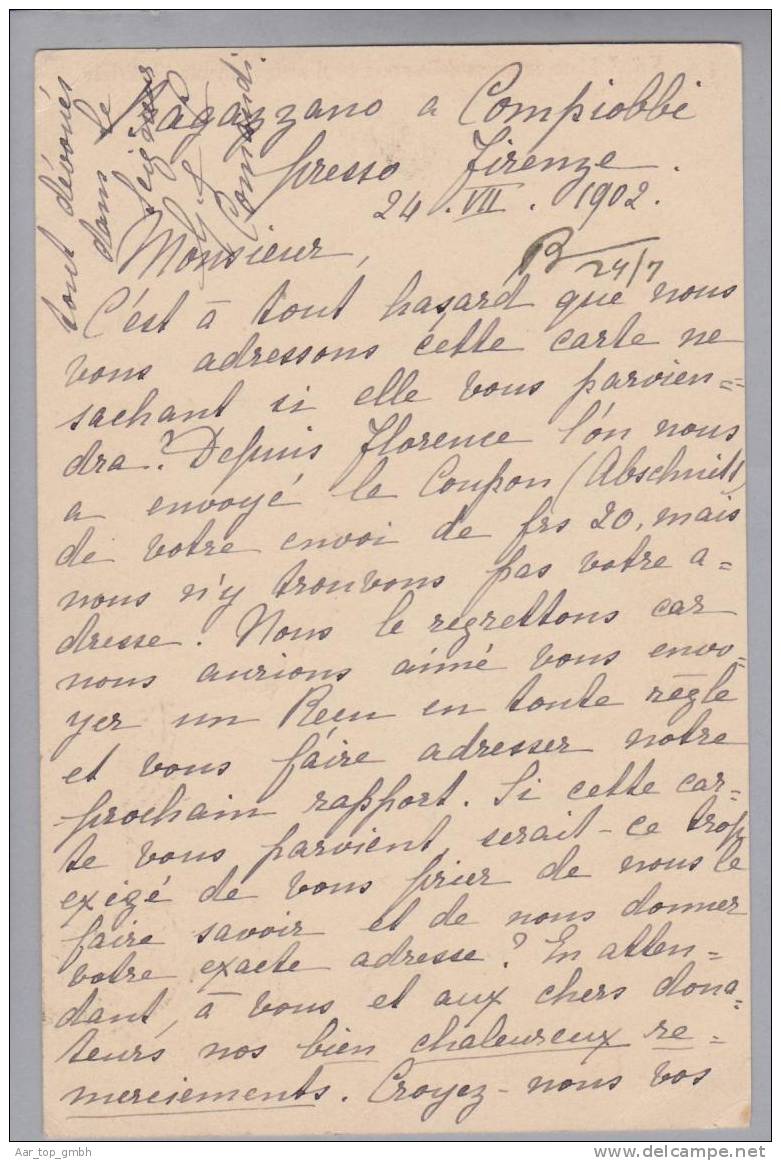 Magazzano a Compiobbi
presso Firenze.
24. VII. 1902.
Monsieur,
B 24/7
C'est à tout hasard que nous
vous adressons cette carte ne
sachant si elle vous parvien=
dra? Depuis Florence l'on nous
a envoyé le Coupon (Abschnitt)
de votre envoi de frs 20, mais
nous n'y trouvons pas votre a=
dresse. Nous le regrettons car
nous aurions aimé vous envo=
yer un Recu en toute règle
et vous faire adresser notre
prochain rapport. Si cette car=
te vous parvient, serait-ce trop
exigé de vous prier de nous le
faire savoir et de nous donner
votre exacte adresse? En atten=
dant, à vous et aux chers dona=
teurs nos bien chaleureux re=
merciements. Croyez-nous vos
tout dévoués
dans le
Seigneur
Comandi
Aar_top_gmbh
www.delcampe.net